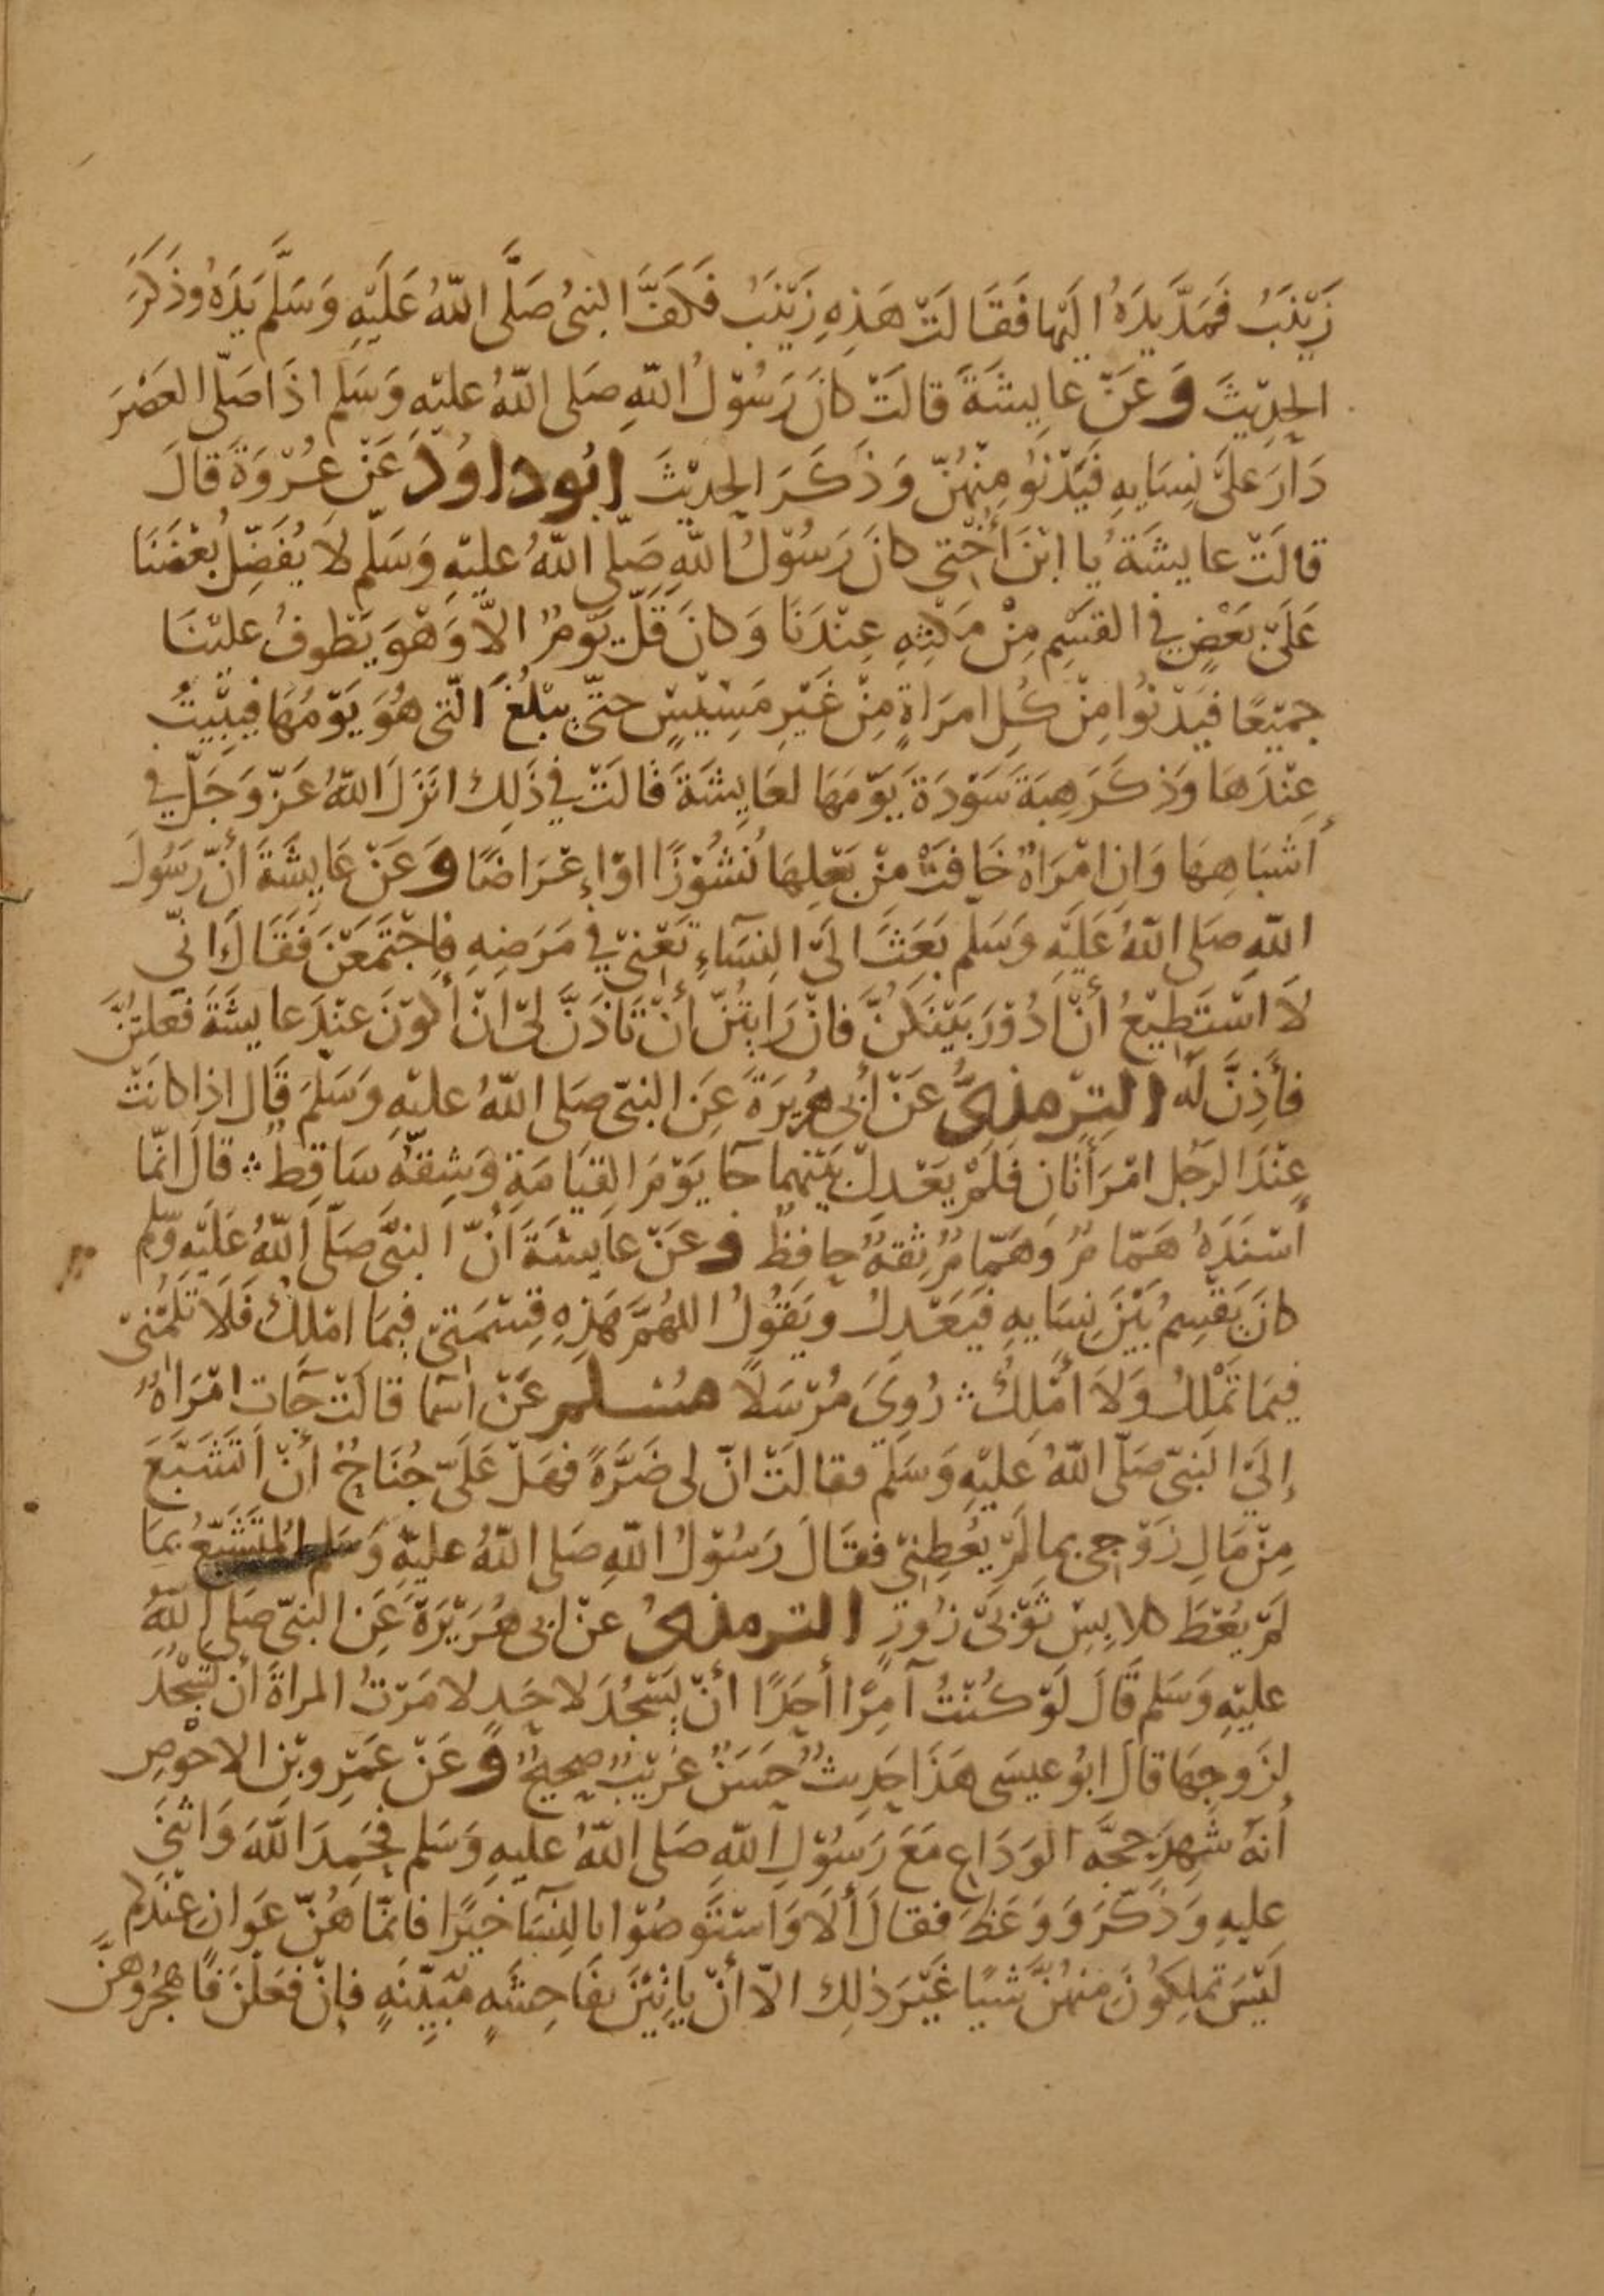 زَيْنَبُ فَمَدَّ يَدَهُ اليها فَقَالَتْ هَذِهِ زَيْنَبُ فَكَفَّ النبىُ صَلَّى اللّهُ عَلَيْهِ وَسَلَّم يَدَهُ وَذَكَرَ
الحدِيْثَ وَعَنْ عَايِشَةَ قالَتْ كانَ رَسُوْلُ اللّهِ صَلى اللّهُ عليْهِ وَسَلم اذَا صَلّى العَصْرَ
دَارَ عَلىَ نِسَايِهِ فَيَدْنُو مِنْهُنّ وَذَكَرَ الحدِيْثَ ابُو داوُد عَنْ عُرْوَةَ قالَ
قالَتْ عايشَةُ يا ابْنَ أُخْتى كانَ رَسُوْلُ اللّهِ صَلّى اللّهُ عليْهِ وَسَلّم لا يُفَضِّل بُعْضَنَا
عَلَىَ بَعْضٍ في القَسْمِ مِنْ مَكْثِهِ عِنْدَنَا وَكانَ قَلَّ يَوْمٌ الاّ وَهْوَ يَطوفُ عليْنَا
جميْعًا فيَدْنُوا مِنْ كُلِ امرَاةٍ مِنْ غَيْرِ مَسِيْسٍ حتىّ يبْلُغَ الّتى هُوَ يَوْمُهَا فيَبِيْتُ
عِنْدَهَا وَذكَرَ هِبَةَ سَوْدَةَ يَوْمَهَا لعَايِشَةَ قَالَتْ في ذَلِك انَزَلَ اللّهُ عَزّ وَجَلّ في
أَشبَاهِهَا وَانِ امْرَاةٌ خَافَتْ مِنْ بَعْلِهَا نُشُوْزًا اوْ اِعْرَاضًا وَعَنْ عَايشَةَ أَنّ رَسُولَ
اللّهِ صَلى اللّهُ عَلَيْهِ وَسَلم بَعَثَ الىَ النِسَآءِ تَعْنِىْ في مَرَضِهِ فاِجْتَمَعْنَ فَقَالَ انّي
لاَ اسْتَطِيْعُ أنْ ادُوْرَ بَيْنَكُنَّ فانْ رَايتُنّ أنْ تَاذَنَّ لِىْ انْ أَكُوْنَ عنْدَ عايشَةَ فَعَلتُنَّ
فأذِنَّ لَه التِرمذِىُّ عَنْ أَبى هُرَيرَةَ عَنِ النبىّ صَلى اللّهُ عليْهِ وَسَلمَ قَالَ اذا كانَتْ
عِنْدَ الرَجُل امْرَأَتَانِ فَلَمْ يَعْدِلْ بَيْنهما جَا يَوْمَ القِيَامَةِ وَشِقّه سَاقِطٌ قالَ انّما
أَسْنَدَهُ هَمّامٌ وَهَمّامٌ ثِقةٌ حافظٌ وعَنْ عايشَةَ أَنّ النبىَّ صَلّى اللّهُ عَلَيْهِ وَسّلم
كانَ يَقْسِمُ بَيْنَ نِسَايهِ فيَعْدِلُ ويَقُوْلُ اللهُمَّ هَذِهِ قِسْمَتىْ فيمَا امْلِكُ فَلاَ تَلُمْنىْ
فيمَا تَمْلكُ وَلاَ أَمْلِكُ رُوِىَ مُرْسَلاً مسلم عَنْ اسَما قالَتْ جَات امْرَاةٌ
إلَىَ النَبىّ صَلّى اللّهُ عليْهِ وَسَلم فقالَتْ انّ لى ضَرَّةً فهَلْ عَلَىّ جُنَاحٌ أنْ اتَشَبّعَ
مِنْ مَالِ زَوْجى بما لَمْ يُعْطِنىْ فقَالَ رَسُوْلُ اللّهِ صَلى اللّهُ عليْهِ وَسَلم المُتَشَبّعُ بمَا
لَمْ يُعْطَ كلابِسِ ثَوْبَىْ زُورٍ الترمذىُ عنْ ابى هُرَيْرَةَ عَنِ النبىّ صَلى اللّهُ
عليْهِ وَسَلم قَالَ لَوْ كُنْتُ آمِرًا أَحَدًا أنْ يَسْجُدَ لاحَدٍ لامَرْتُ المراةَ أَن تَسْجُدَ
لِزَوجِهَا قالَ ابُو عيسَى هَذَا حَدِيثٌ حَسَنٌ غَرِيْبٌ صحِيحٌ وَعَنْ عَمْرِو بْنِ الاحْوَصِ
أَنهُ شَهِدَ حجّةَ الوَدَاعِ مَعَ رَسُوْلِ اللّهِ صَلى اللّهُ عليهِ وَسَلم فحَمِدَ اللّهَ وَاثنَىَ
عليهِ وَذَكّرَ وَوَعَظَ فقالَ أَلاَ وَاسْتَوصُوْا بالنِسَآ خَيْرًا فانمّا هُنّ عَوانٍ عِنْدكم
لَيْسَ تملِكُونَ مِنهُنَّ شيًا غَيْرَ ذلِك الاّ أنْ ياتِيْنَ بفَاحِشَةٍ مُبَيّنَةٍ فاِنْ فعَلْنَ فَاهْجُرُوهُنَّ